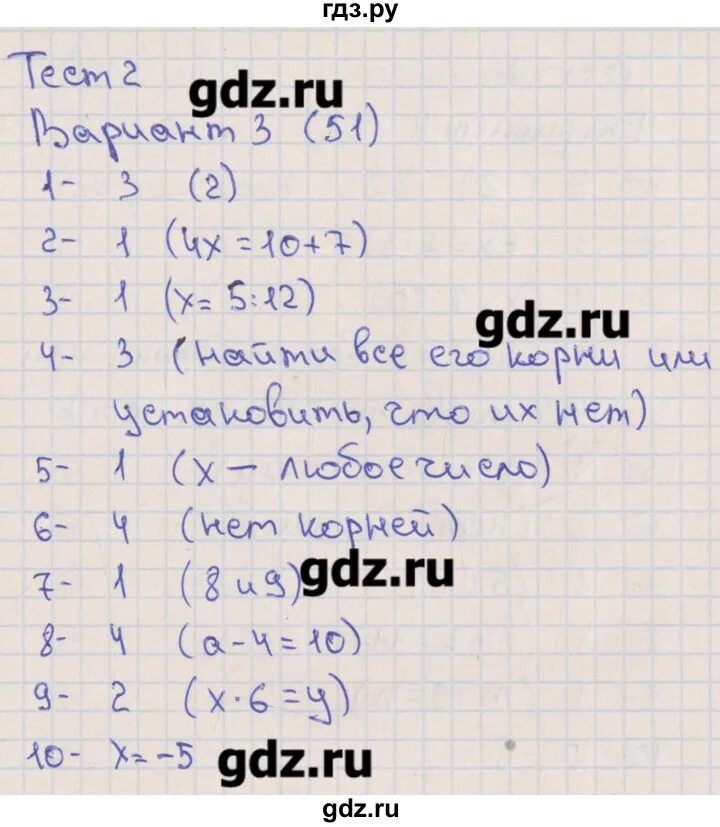 гдз.ру
Тест 2
gdz.ru
Вариант 3 (51)
1- 3 (2)
2- 1 (4x = 10+7)
3- 1 (x = 5:12)
gdz.ru
4- 3 (найти все его корни или
установить, что их нет)
5- 1 (x — любое число)
6- 4 (нет корней)
7- 1 (8 и 9)
gdz.ru
8- 4 (a-4=10)
9- 2 (x·6=y)
10- x=-5
gdz.ru
gdz.ru